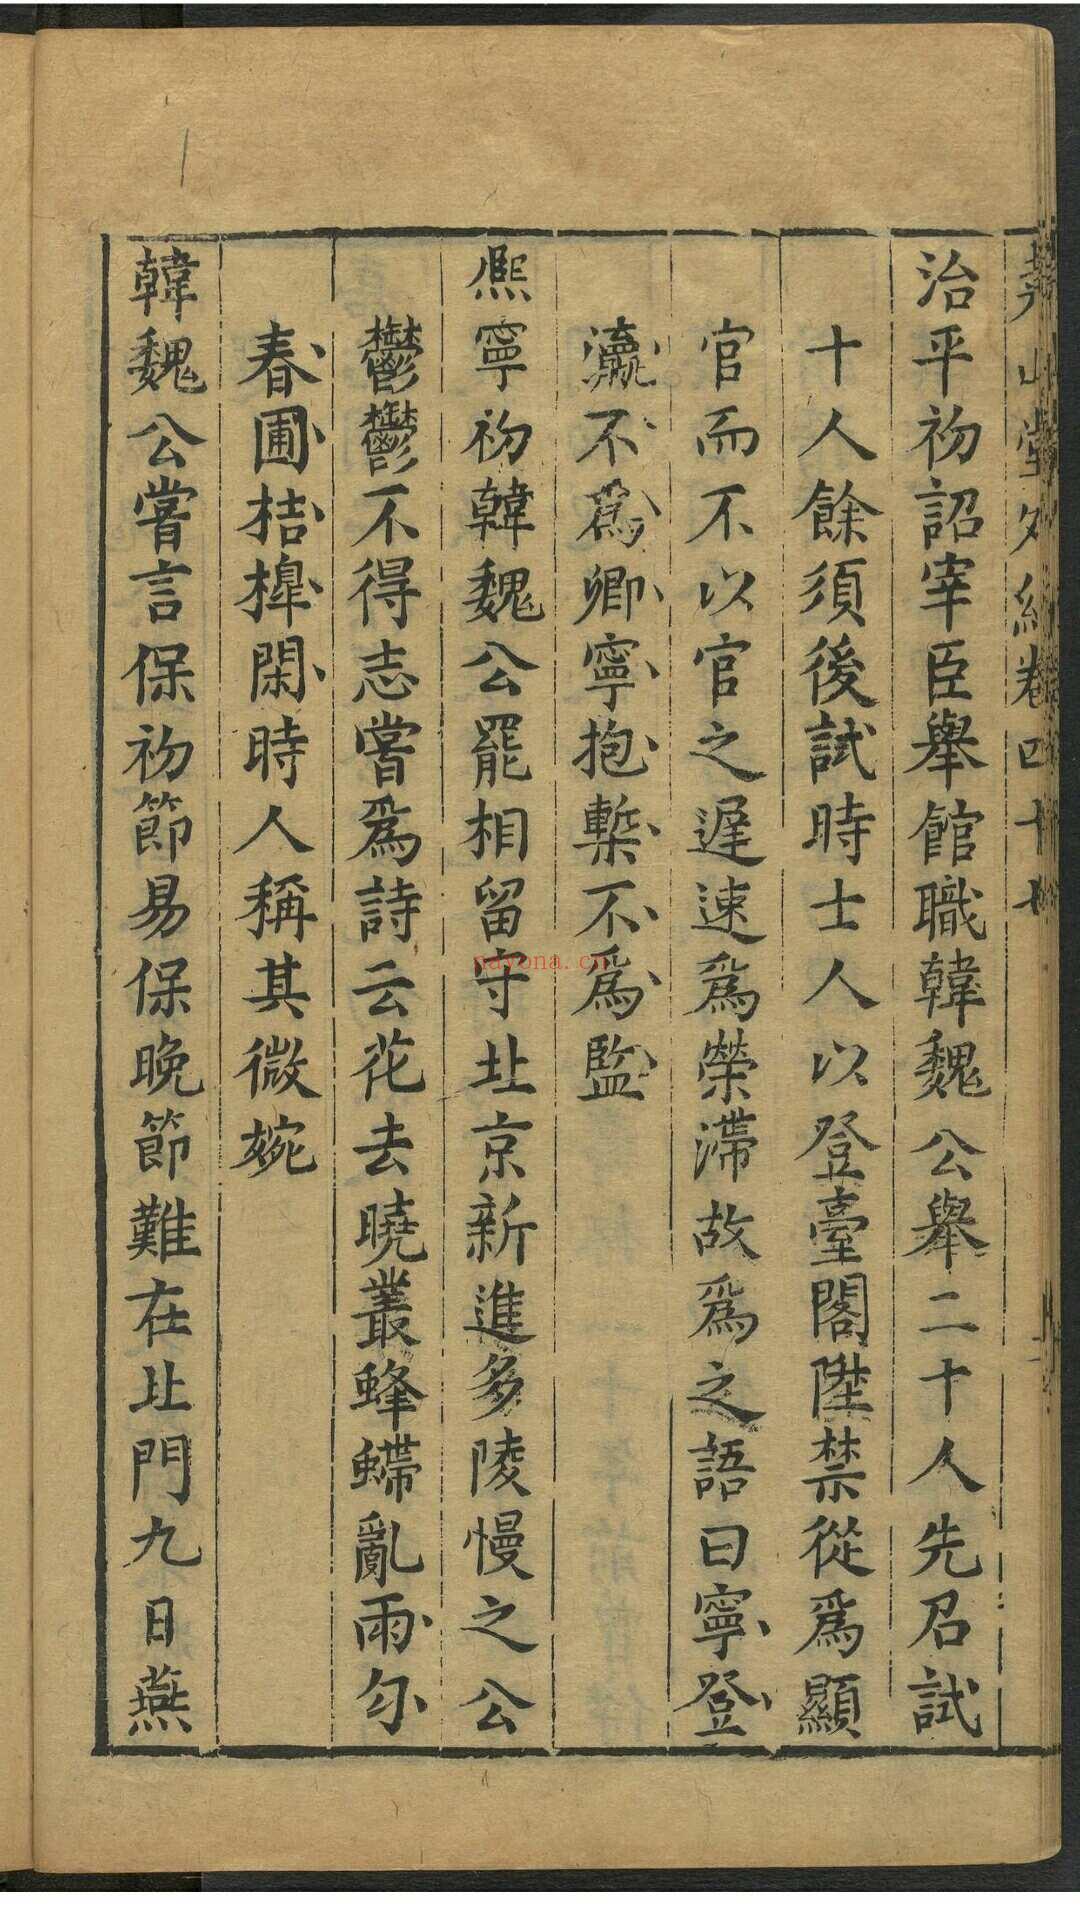 堯山堂外紀卷四十七
治平初詔宰臣舉館職韓魏公舉二十人先召試
十人餘須後試時士人以登臺閣陞禁從爲顯
官而不以官之遲速爲榮滯故爲之語曰寧登
瀛不爲卿寧抱槧不爲監
熈寧初韓魏公罷相留守北京新進多陵慢之公
鬱鬱不得志嘗爲詩云花去曉叢蜂蝶亂雨勻
春圃桔槹閑時人稱其微婉
韓魏公嘗言保初節易保晚節難在北門九日燕
nayona.cn